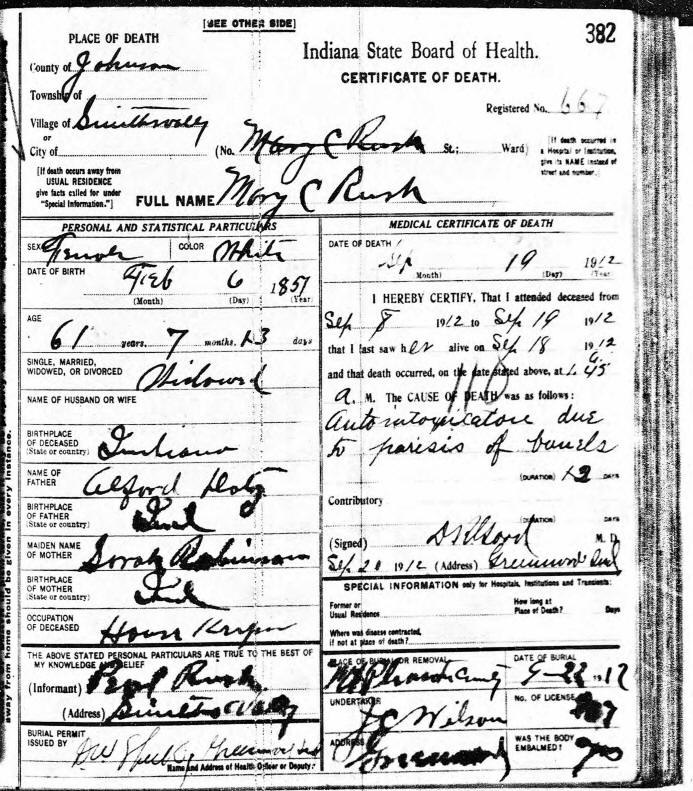 [SEE OTHER SIDE]
382
PLACE OF DEATH
Indiana State Board of Health.
CERTIFICATE OF DEATH.
County of Johnson
Township of
Registered No. 667
Village of Smithvalley
or
City of
(No. Mary C Rush St.; Ward)
[If death occurred in a Hospital or Institution, give its NAME instead of street and number.]
[If death occurs away from USUAL RESIDENCE give facts called for under "Special Information."]
FULL NAME Mary C Rush
PERSONAL AND STATISTICAL PARTICULARS
SEX Female COLOR White
DATE OF BIRTH Feb 6 1851
(Month) (Day) (Year)
AGE
61 years. 7 months. 13 days
SINGLE, MARRIED,
WIDOWED, OR DIVORCED Widowed
NAME OF HUSBAND OR WIFE
BIRTHPLACE
OF DECEASED
(State or country) Indiana
NAME OF
FATHER Alford Doty
BIRTHPLACE
OF FATHER
(State or country) Ind
MAIDEN NAME
OF MOTHER Sarah Robinson
BIRTHPLACE
OF MOTHER
(State or country) Ind
OCCUPATION
OF DECEASED House Keeper
THE ABOVE STATED PERSONAL PARTICULARS ARE TRUE TO THE BEST OF
MY KNOWLEDGE AND BELIEF
(Informant) Rush
(Address) Smiths Valley
BURIAL PERMIT
ISSUED BY Greenwood Ind
Name and Address of Health Officer or Deputy:
MEDICAL CERTIFICATE OF DEATH
DATE OF DEATH
Sep 19 1912
(Month) (Day) (Year)
I HEREBY CERTIFY, That I attended deceased from
Sep 8 1912 to Sep 19 1912
that I last saw her alive on Sep 18 1912
and that death occurred, on the date stated above, at 1.45
a. M. The CAUSE OF DEATH was as follows:
110
Autointoxication due
to paresis of bowels
(DURATION) 12 DAYS
Contributory
(DURATION) DAYS
(Signed) M. D.
Sep 20 1912 (Address) Greenwood Ind
SPECIAL INFORMATION only for Hospitals, Institutions and Transients:
Former or
Usual Residence
How long at
Place of Death? Days
Where was disease contracted,
if not at place of death?
PLACE OF BURIAL OR REMOVAL
Mt Pleasant Cemty
DATE OF BURIAL
9-22 1912
UNDERTAKER
J C Wilson
NO. OF LICENSE
ADDRESS
Greenwood
WAS THE BODY
EMBALMED? yes
away from home should be given in every instance.